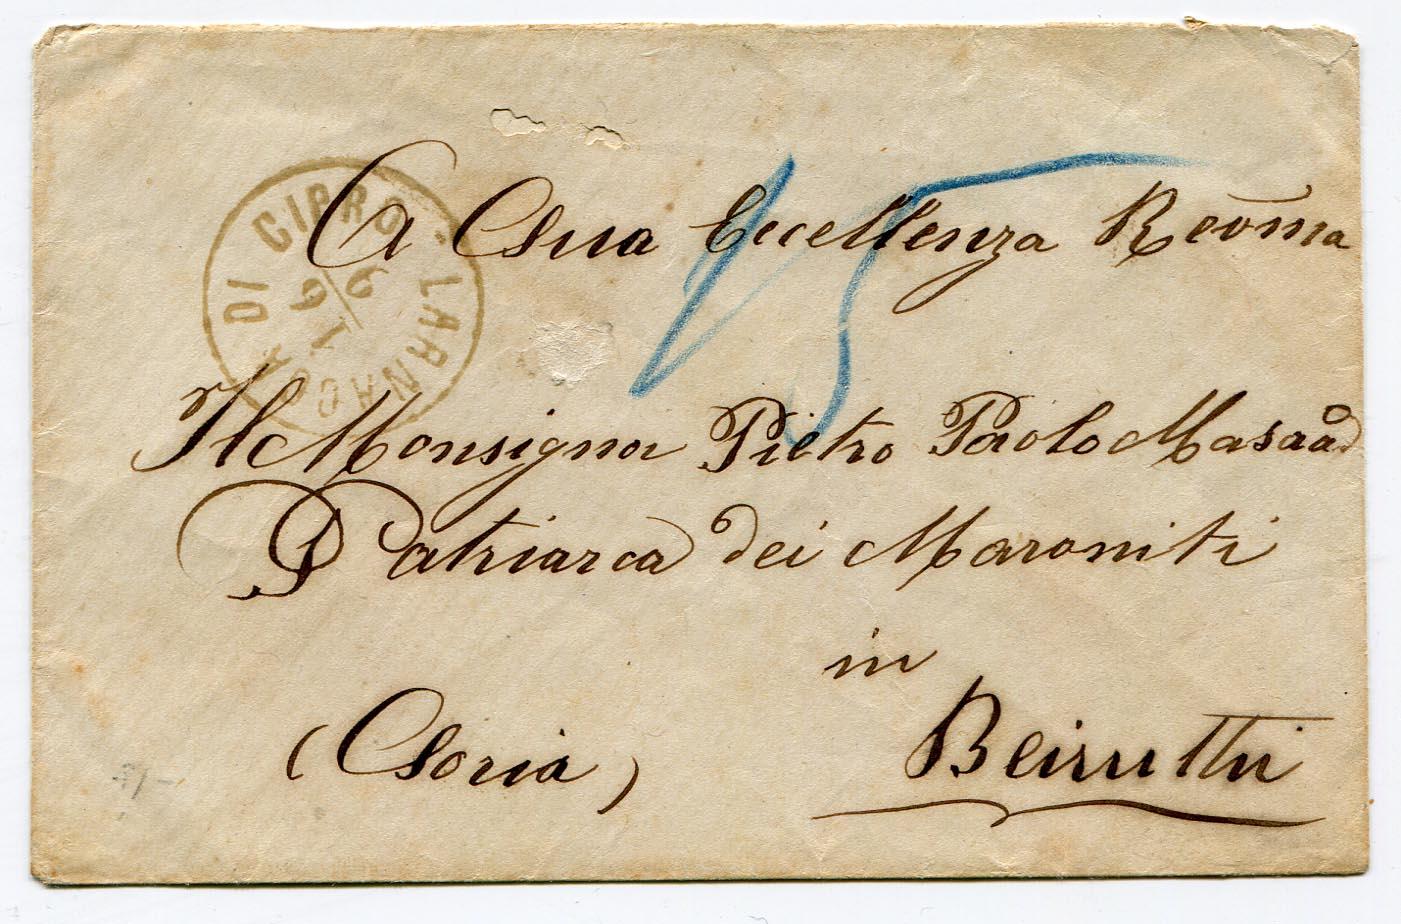 LARNACA DI CIPRO
9
6
15
A Sua Eccellenza Rev̄ma
Il Monsignor Pietro Paolo Masaad
Patriarca dei Maroniti
in
(Soria)
Beirutti